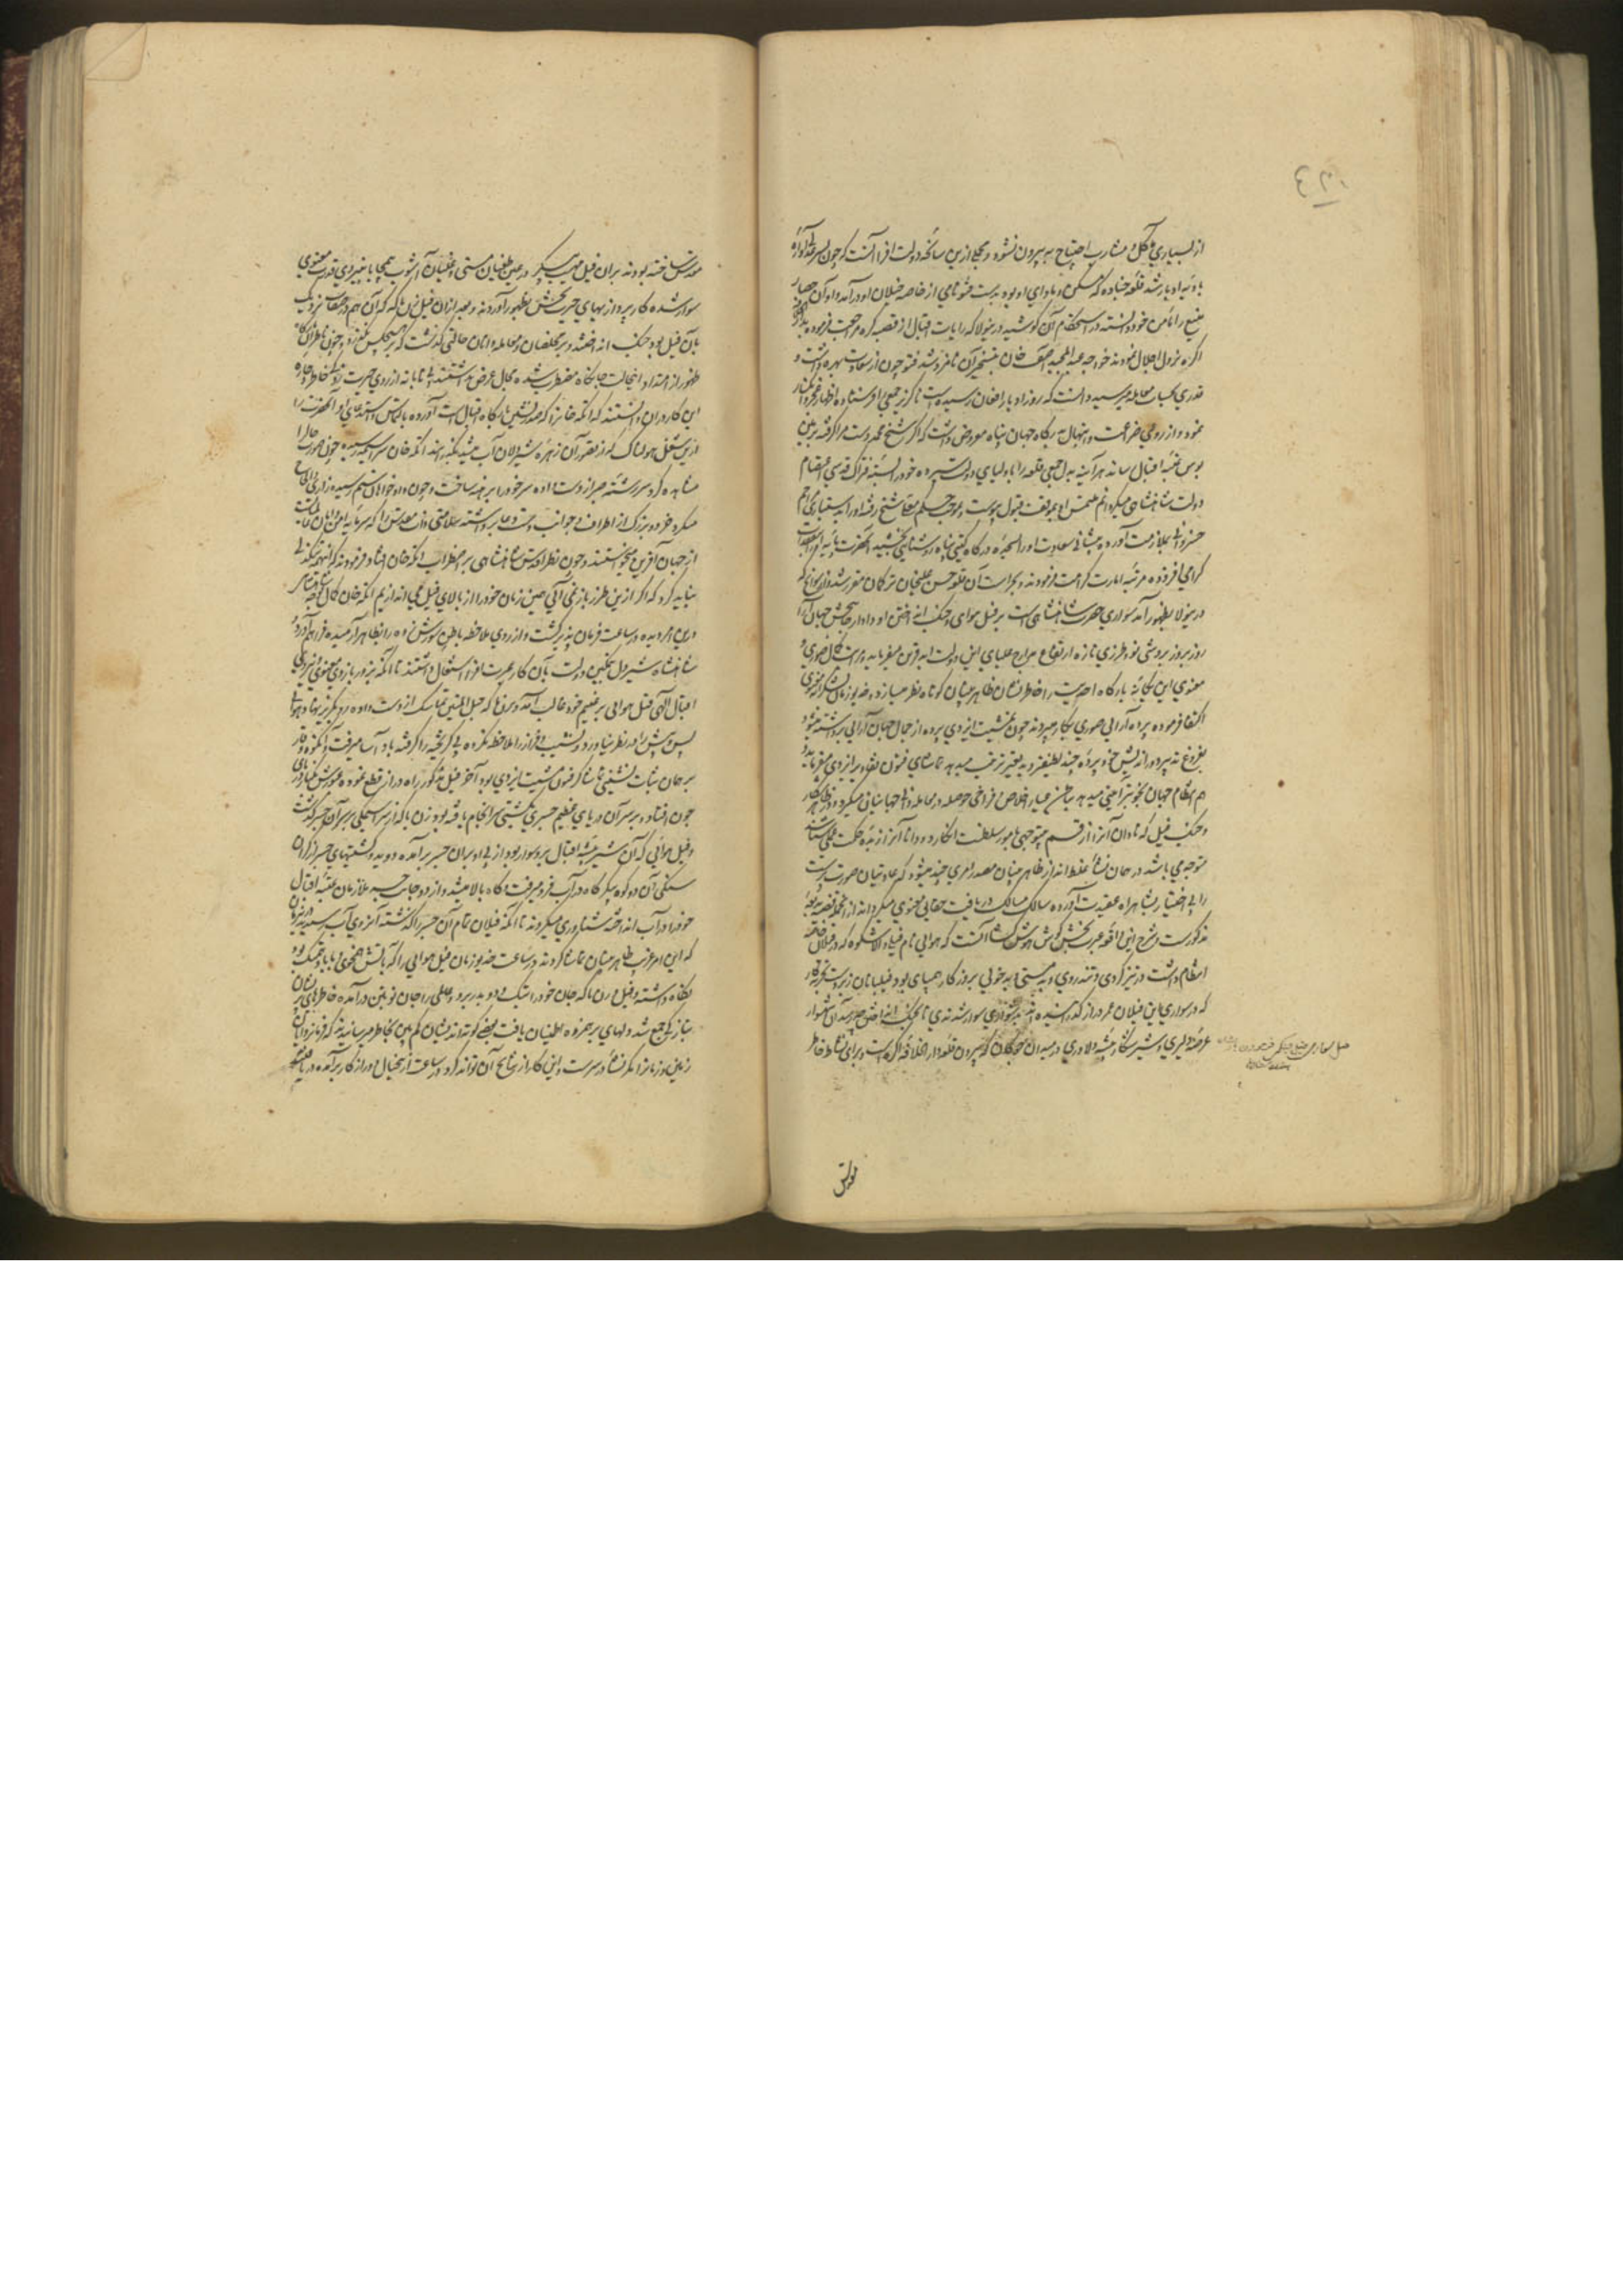 از بسیاری مشارب احتیاج به بیرون نشود و مجملی ازین سانحه دولت افزا آنست که چون
بادیه ادبار شد قلعه چناده که مسکن و ماوای او بود بدست فتو نامی از خاصه خیلان او درآمد و او آن حصار
منیع را مامن خود دانسته در استحکام آن کوشید درینولا که رایات اقبال از قصبه کره مراجعت فرموده
اکره نزول اجلال نمودند خواجه عبد المجید آصف خان بتسخیر آن نامزد شد فتو چون از سعادت بهره داشت و
قدری بحساب معامله میرسید دانست که روز ادبار افغانان رسیده است ناکزیر جمعی را فرستاده اظهار
نمود و از روی ضراعت و ابتهال بدرکاه جهان پناه معروض داشت که اکر شیخ محمد دست مرا کرفته بزمین
بوس عتبه اقبال رساند هر آینه بدلجمعی قلعه را باولیای دولت سپرده خود را بسته فتراک قدسی
دولت شاهنشاهی میکردانم ملتمس او بموقف قبول پیوست و بموجب حکم شیخ رفته او را
خسروانی بملازمت آورده پیشانی سعادت او را بسجده درکاه کیتی پناه روشنایی بخشید آنحضرت
کرامی افزوده مرتبه امارت کرامت فرمودند و بحراست آن قلعه حسن علیخان ترکمان مقرر شد و از سوانح که
درینولا بظهور آمد سواری حضرت شاهنشاهی است بر فیل هوایی و جنک انداختن او دادار جهان آرا
روز بروز بروشی نو و طرزی تازه ارتفاع مدارج علیای این دولت ابد قرین میفرماید و مراتب کمال صوری و
معنوی این یکانه بارکاه احدیت را خاطر نشان ظاهر بینان کوتاه نظر میسازد و خدیو زمان
اکتفا فرموده پرده آرایی صوری بکار میبردند چون بمشیت ایزدی پرده از جمال جهان آرایی برداشته میشود
بفروغ تدبیر دور اندیش خود پرده چند لطیفتر و بدیعتر ترتیب میدهد تماشای فنون تقادیر ایزدی میفرمایند
هم نظام جهان بخوبترین آیینی میدهد هم عیار اخلاص فراخی حوصله و معامله دانی جهانیان میکیرد و در ظاهر کار
و جنک فیل که نادان آنرا از قسم بیتوجهی بامور سلطنت انکارد و دانا آنرا زبده حکمت عملی شناسد
متوجه می باشد در همان نشاء غلط انداز ظاهر بینان مصدر امری چند میشود که عادتیان صورت پرست
را بی اختیار بشاهراه عقیدت آورده سالک مسالک دریافت حقایق معنوی میکرداند از آنجمله قضیه
مذکورست و شرح این واقعه عبرت بخش کوش هوش کشا آنست که هوایی نام فیل والا شکوه که در فیلان خاصه
انتظام داشت در تیز کردی و تند روی و بدمستی و بدخویی بروزکار همپای بود فیلبانان زبردست تجربه کار
که در سواری این فیلان عمر دراز کذرانیده اند بدشواری سوار شدندی تا بجنک انداختن چه رسد آن شهسوار
عرصه دلیری و شیر شکار بیشه دلاوری در میدان چوکان که بیرون قلعه دار الخلافه اکره است و برای نشاط خاطر
مقدس
مقدس ساخته بودند بر آن فیل مهیب پیکر در عین طغیان مستی و غلیان آشوب بی محابا به نیروی قدرت معنوی
سوار شده کارپردازیهای حیرت بخش بظهور آوردند و بعد از آن فیل رن باکه که آن هم در صفات نزدیک
بآن فیل بود بجنک انداختند و بر مخلصان و معامله دانان حالتی کذشت که بر هیچکس نکذرد و چون
ظهور از امتداد اینحالت جانکاه مضطرب شده مجال عرض نداشتند بی تابانه از روی حیرت
این کاروان دانستند که اتکه خان را که صدر نشین بارکاه اقبال است آورده بالتماس و استدعای او آنحضرت را
ازین شغل هولناک که از تصور آن زهره شیردلان آب میشد بکذرانند اتکه خان سراسیمه رسیده چون صورت حال را
مشاهده کرد سررشته صبر از دست داده سر خود را برهنه ساخت و چون دادخواهان ستم رسیده زاری و الحاح
میکرد خرد و بزرک از اطراف و جوانب دست دعا برداشته سلامتی ذات مقدس را که سرمایه امن و امان عالمست
از جهان آفرین میخواستند و چون نظر اقدس شاهنشاهی بر اضطراب اتکه خان افتاد فرمودند که اینهمه بی تمکینی
نباید کرد که اکر ازین طرز باز نمی آیی همین زمان خود را از بالای فیل می اندازیم اتکه خان کمال توجه
درین امر دیده در ساعت فرمان پذیر کشت و از روی ملاحظه باطن شورش زده را بظاهر آرمیده فراهم آورد و
شاهنشاه شیر دل بتمکین دولت بآن کار عبرت افزا اشتغال داشتند تا آنکه بزور بازوی معنوی و نیروی
اقبال الهی فیل هوایی بر غنیم خود غالب آمد و رن باکه حبل المتین تماسک از دست داده رو بکریز نهاد و هوایی
پس و پیش را در نظر نیاورد و نشیب و فراز را ملاحظه نکرده پی کریخته را کرفته باد آسا میرفت و آنکوه وقار
بر همان ثبات نشینی تماشاکر فنون مشیت ایزدی بود آخر فیل مذکور راه دراز قطع نموده عبورش بکنار دریای
جون افتاد و بر سر آن دریای عظیم جسری بکشتی سرانجام یافته بود رن باکه از سراسیمکی بر سر آن جسر کذشت
و فیل هوایی که آن شیر بیشه اقبال برو سوار بود از پی او بر آن جسر برآمده دوید و کشتیهای جسر از کران
سنکی آن دو کوه پیکر کاه در آب فرو میرفت و کاه بالا میشد و از دو جانب جسر ملازمان عتبه اقبال
خود را در آب انداخته شناوری میکردند تا آنکه فیلان تمام آن جسر را کذشته آنروی آب رسیدند
که این امر غریب ظاهر بینان تماشا کردند در ساعت خدیو زمان فیل هوایی را که بآتش همخوی و بباد همتک بود
نکاه داشته و فیل رن باکه جان خود را بتک و دو بدر برد و عالمی را جان نو بتن درآمده خاطرهای پریشان
بتازکی جمع شد و دلهای برهم زده اطمینان یافت بعضی کوته اندیشان کم بین بخاطر میرسانیدند که فرمانروای
زمین و زمان را مکر نشاء در سرست و این کار از نتایج آن تواند کرد در ساعت از آنخیال دور از کار برآمده